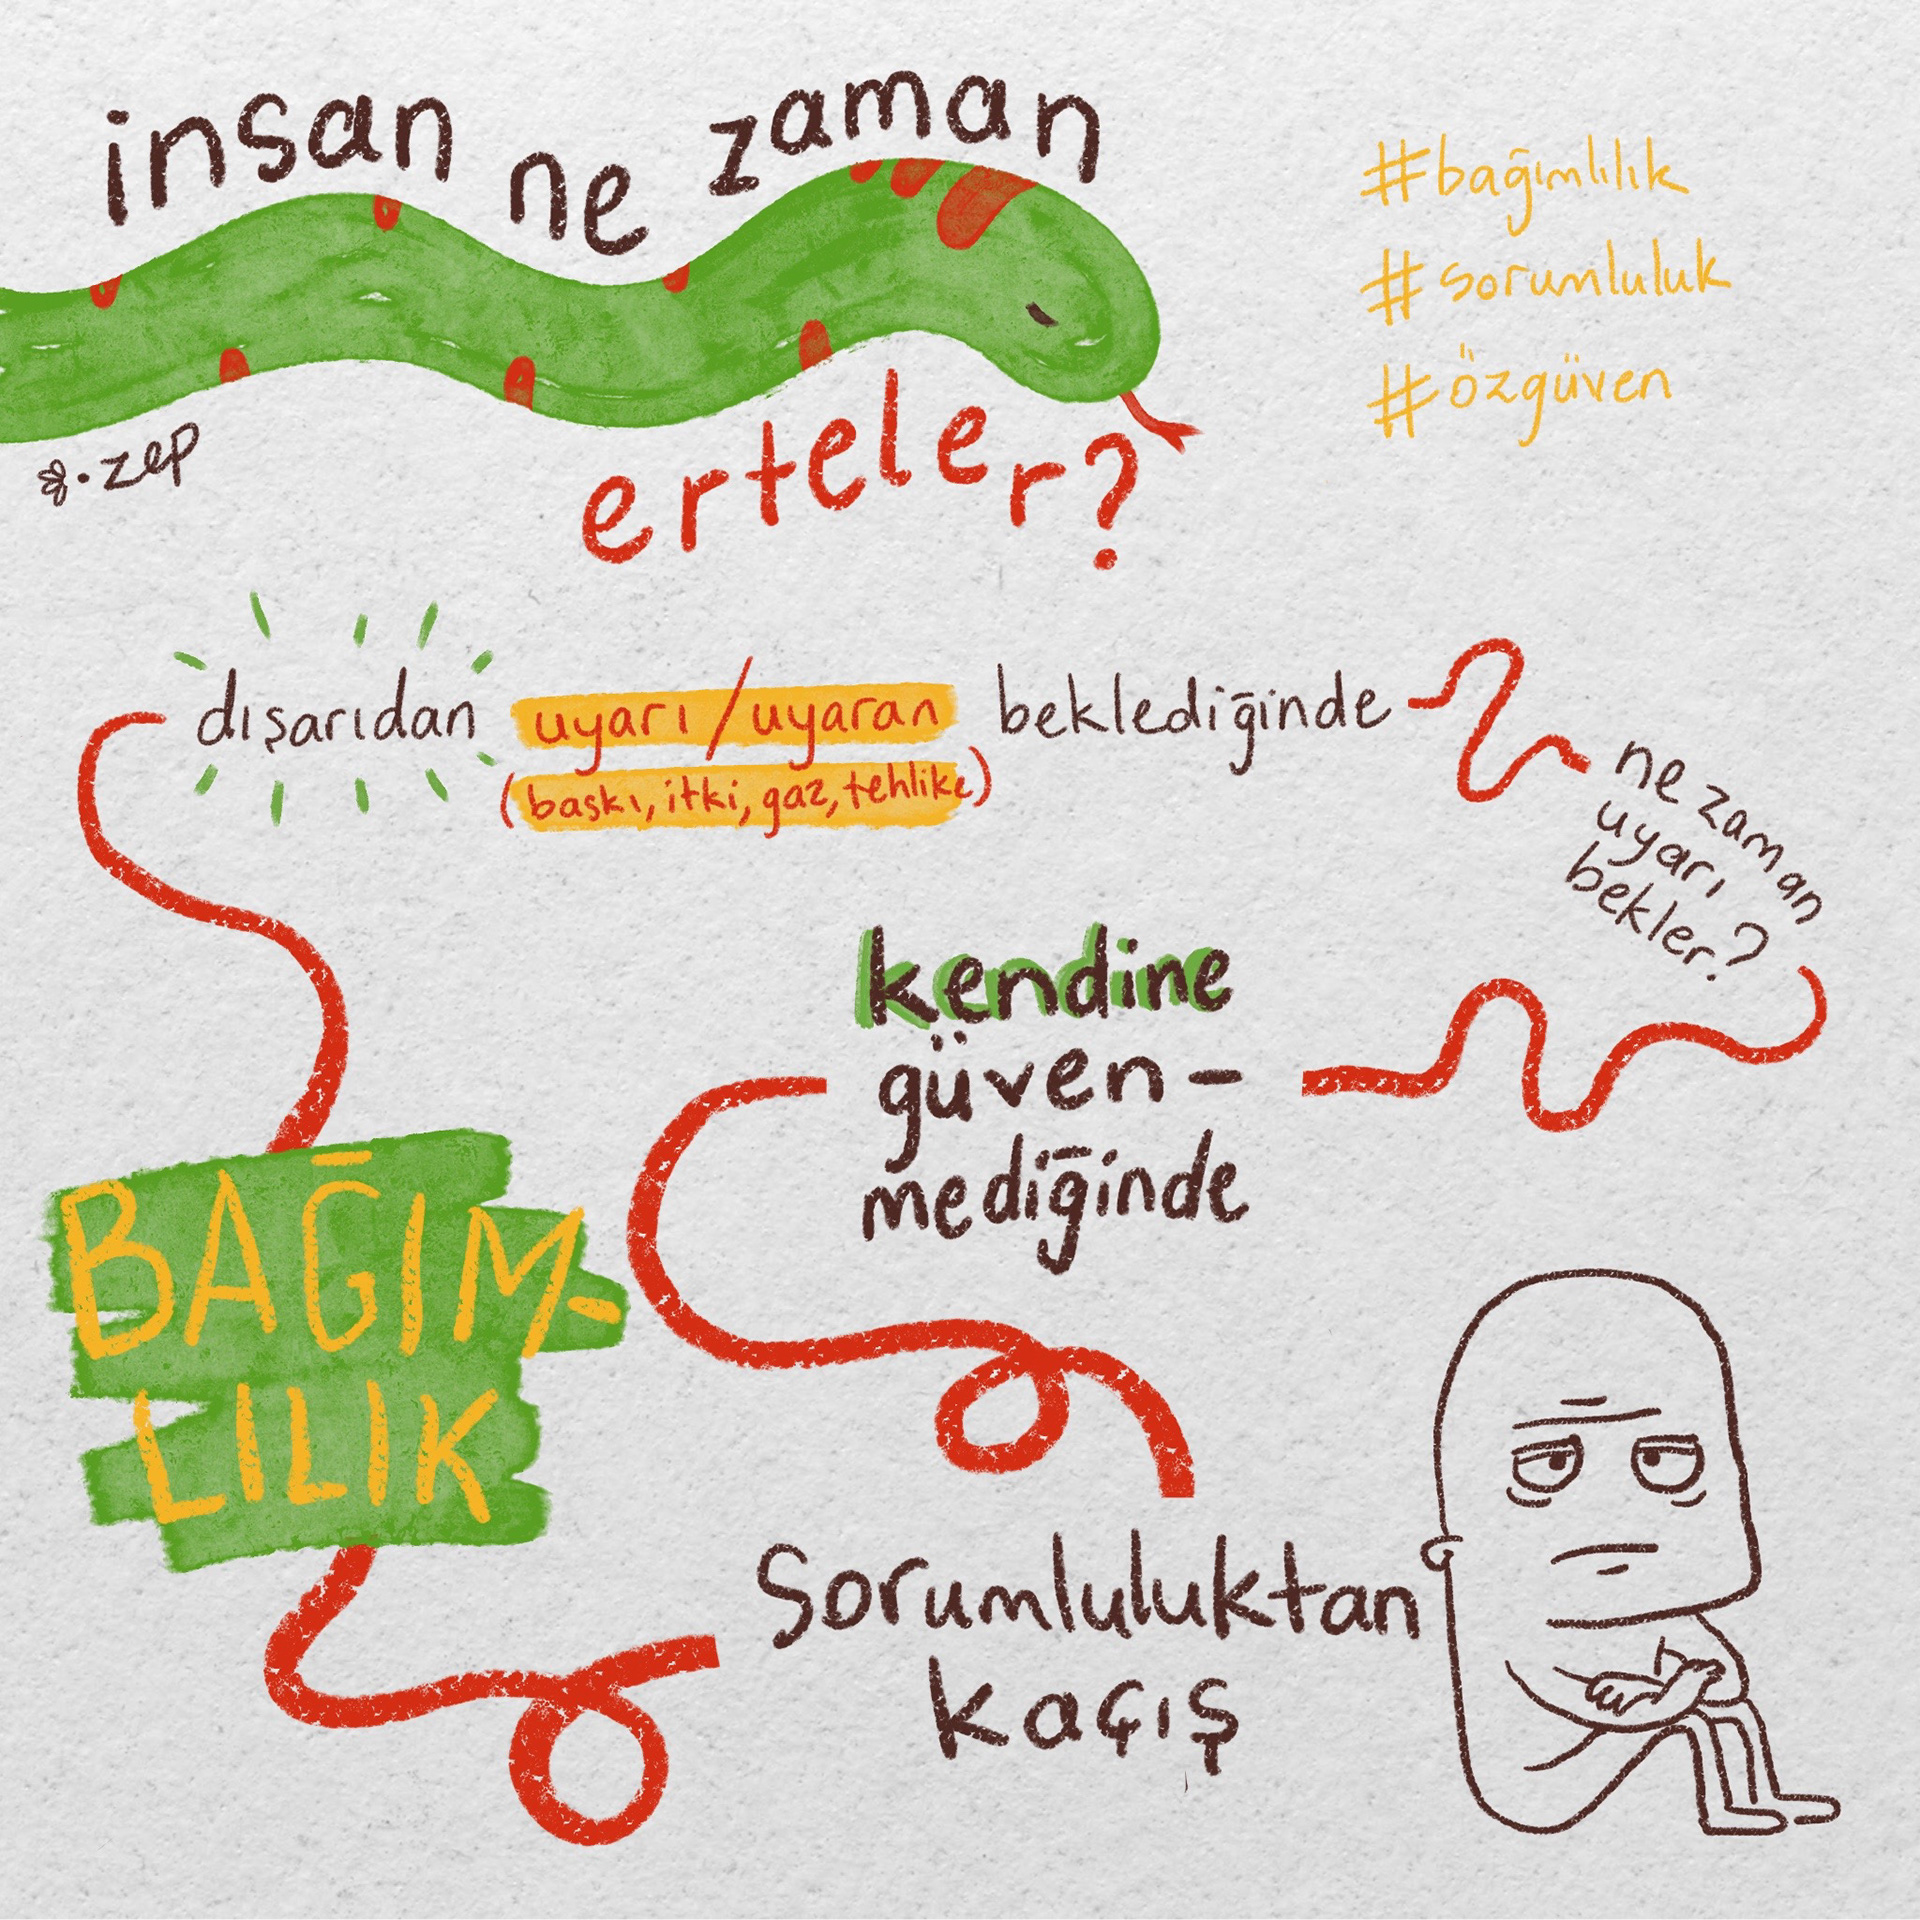 insan ne zaman
erteler?
#bağımlılık
#sorumluluk
#özgüven
zep
dışarıdan uyarı/uyaran beklediğinde
(baskı, itki, gaz, tehlike)
ne zaman
uyarı
bekler?
kendine
güven-
mediğinde
BAĞIM-
LILIK
Sorumluluktan
kaçış